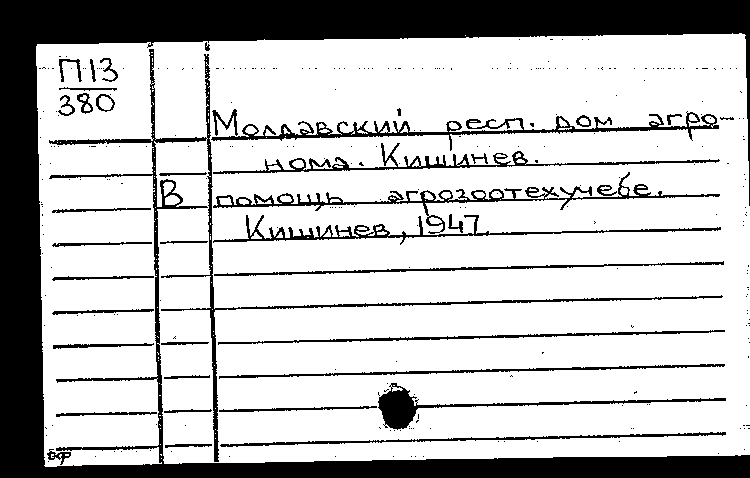 П13
380
Молдавский респ. дом агро-
нома. Кишинев.
В помощь агрозоотехучебе.
Кишинев, 1947.